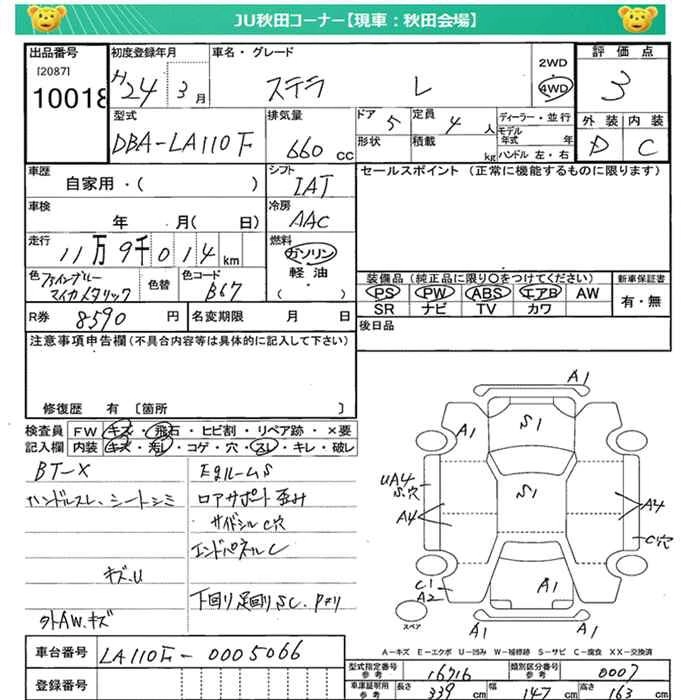 JU秋田コーナー【現車：秋田会場】
出品番号 初度登録年月 車名・グレード 2WD 評価点
[2087] H24 3月 ステラ L 4WD 3
10018
型式 排気量 ドア 5 定員 4人 ディーラー・並行 外装 内装
DBA-LA110F 660cc 形状 積載 kg モデル年式 年 D C
ハンドル 左・右
車歴 シフト セールスポイント（正常に機能するものに限ります）
自家用・( ) IAT
車検 冷房
年 月( 日) AAC
走行 燃料
11万9千014km ガソリン
軽油
( )
色 ファインブルーマイカメタリック 色替 色コード B67
装備品（純正品に限り○をつけてください） 新車保証書
PS PW ABS エアB AW 有・無
SR ナビ TV カワ
R券 8590円 名変期限 月 日 後日品
注意事項申告欄（不具合内容等は具体的に記入して下さい）
修復歴 有 〔箇所 〕
検査員 FW キズ・飛石・ヒビ割・リペア跡・×要
記入欄 内装 キズ・汚レ・コゲ・穴・スレ・キレ・破レ
BT-X Egルーム S
ハンドルスレ、シートシミ ロアサポート歪み
サイドシル C穴
エンドパネル C
キズ.U
下回り足回り S C.
外AW.キズ
A1
S1
A1
UA4
S.穴 S1
A4 A4
C穴
C1
A2 A1
スペア A1 A1
A-キズ E-エクボ U-凹み W-補修跡 S-サビ C-腐食 XX-交換済
車台番号 LA110F-0005066
型式指定番号 参考 16716 類別区分番号 参考 0007
登録番号
車庫証明用 参考 長さ 339cm 幅 147cm 高さ 163cm